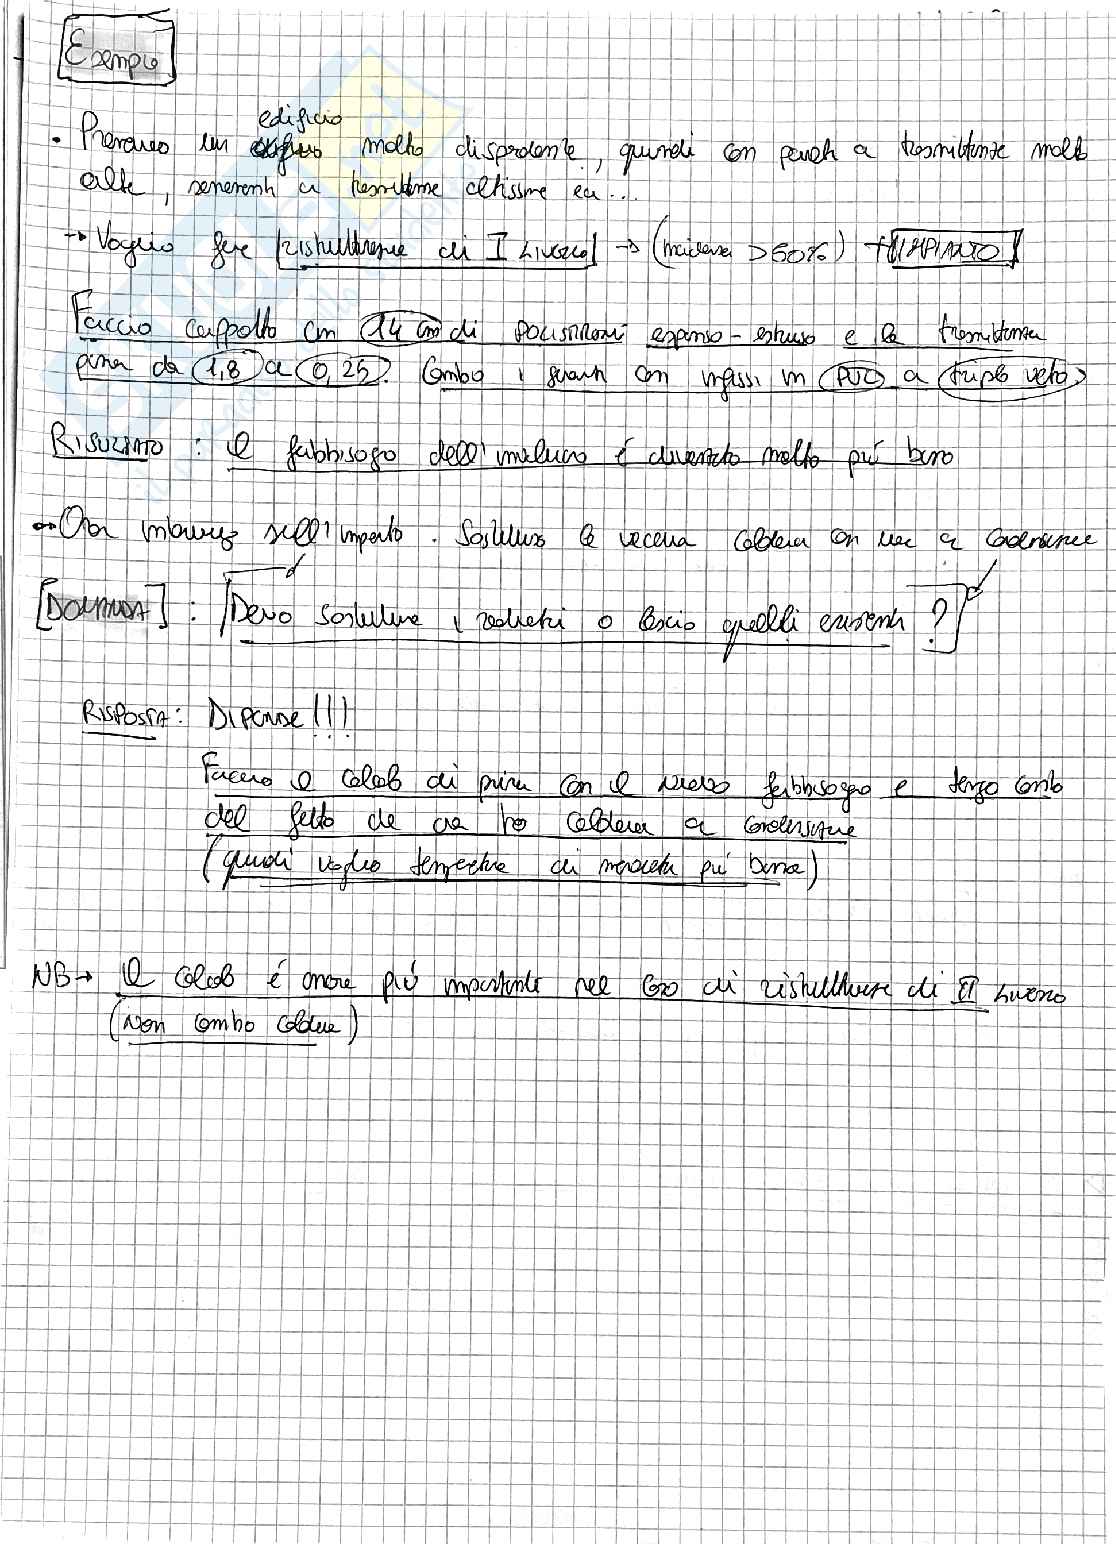 Esempio
edificio
• Prendiamo un molto disperdente, quindi con pareti a trasmittanze molto
alte, serramenti a trasmittanze altissime ecc...
→ Voglio fare ristrutturazione di I LIVELLO → (incidenza >50%) + IMPIANTO
Faccio cappotto con 14 cm di polistirene espanso-estruso e la trasmittanza
passa da 1,8 a 0,25. Cambio i serramenti con infissi in PVC a triplo vetro
RISULTATO : il fabbisogno dell'involucro é diventato molto più basso
Ora intervengo sull'impianto. Sostituisco la vecchia caldaia con una a condensazione
[DOMANDA] : Devo sostituire i radiatori o lascio quelli esistenti ?
RISPOSTA : DIPENDE!!!
Faccio il calcolo di prima con il nuovo fabbisogno e tengo conto
del fatto che ora ho caldaia a condensazione
(quindi voglio temperatura di mandata più bassa)
NB → Il calcolo é ancora più importante nel caso di ristrutturazione di II LIVELLO
(Non cambio caldaia)